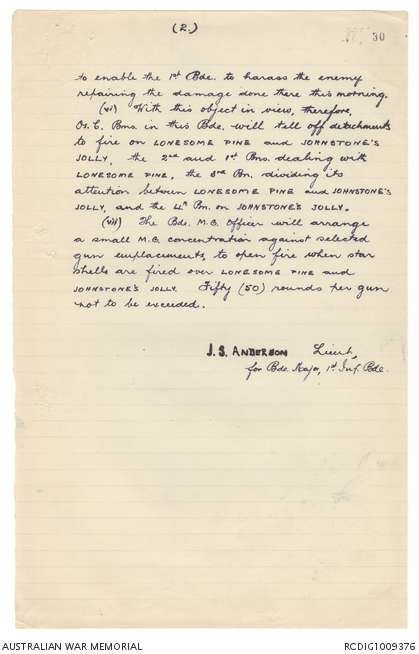 (2.)
30
to enable the 1st Bde. to harass the enemy
repairing the damage done there this morning.
(vi) With this object in view, therefore,
Os.C. Bns. in this Bde. will tell off detachments
to fire on LONESOME PINE and JOHNSTONE'S
JOLLY, the 2nd and 1st Bns. dealing with
LONESOME PINE, the 3rd Bn. dividing its
attention between LONESOME PINE and JOHNSTONE'S
JOLLY, and the 4th Bn. on JOHNSTONE'S JOLLY.
(vii) The Bde. M.G. Officer will arrange
a small M.G. concentration against selected
gun emplacements, to open fire when star
shells are fired over LONESOME PINE and
JOHNSTONE'S JOLLY. Fifty (50) rounds per gun
not to be exceeded.
J.S. ANDERSON Lieut,
for Bde. Major, 1st Inf. Bde.
AUSTRALIAN WAR MEMORIAL
RCDIG1009376